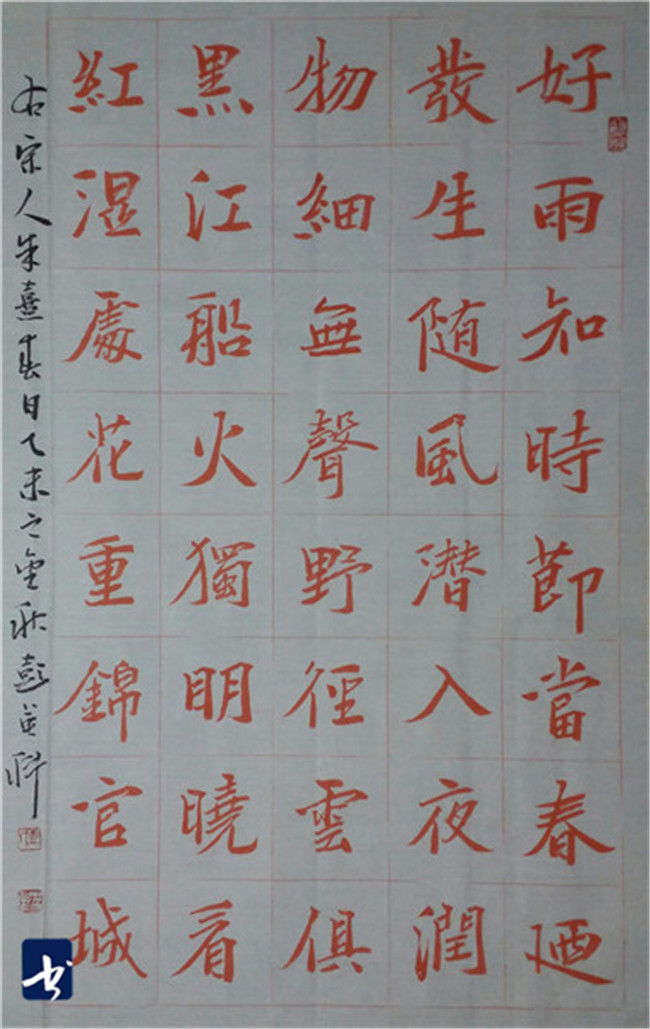 好雨知時節當春廼
發生随風潜入夜潤
物細無聲野徑雲俱
黑江船火獨明曉看
紅湿處花重錦官城
右宋人朱熹春日乙未之金秋彭
书